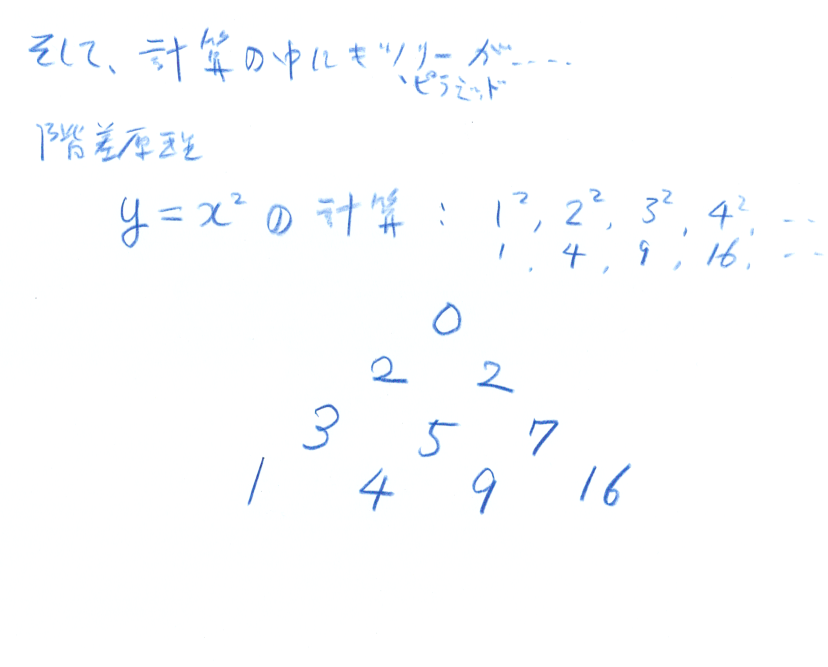 そして、計算の中にもツリーが……
ピラミッド
階差原理
y = x² の 計算 : 1², 2², 3², 4², …
1, 4, 9, 16, …
0
2 2
3 5 7
1 4 9 16